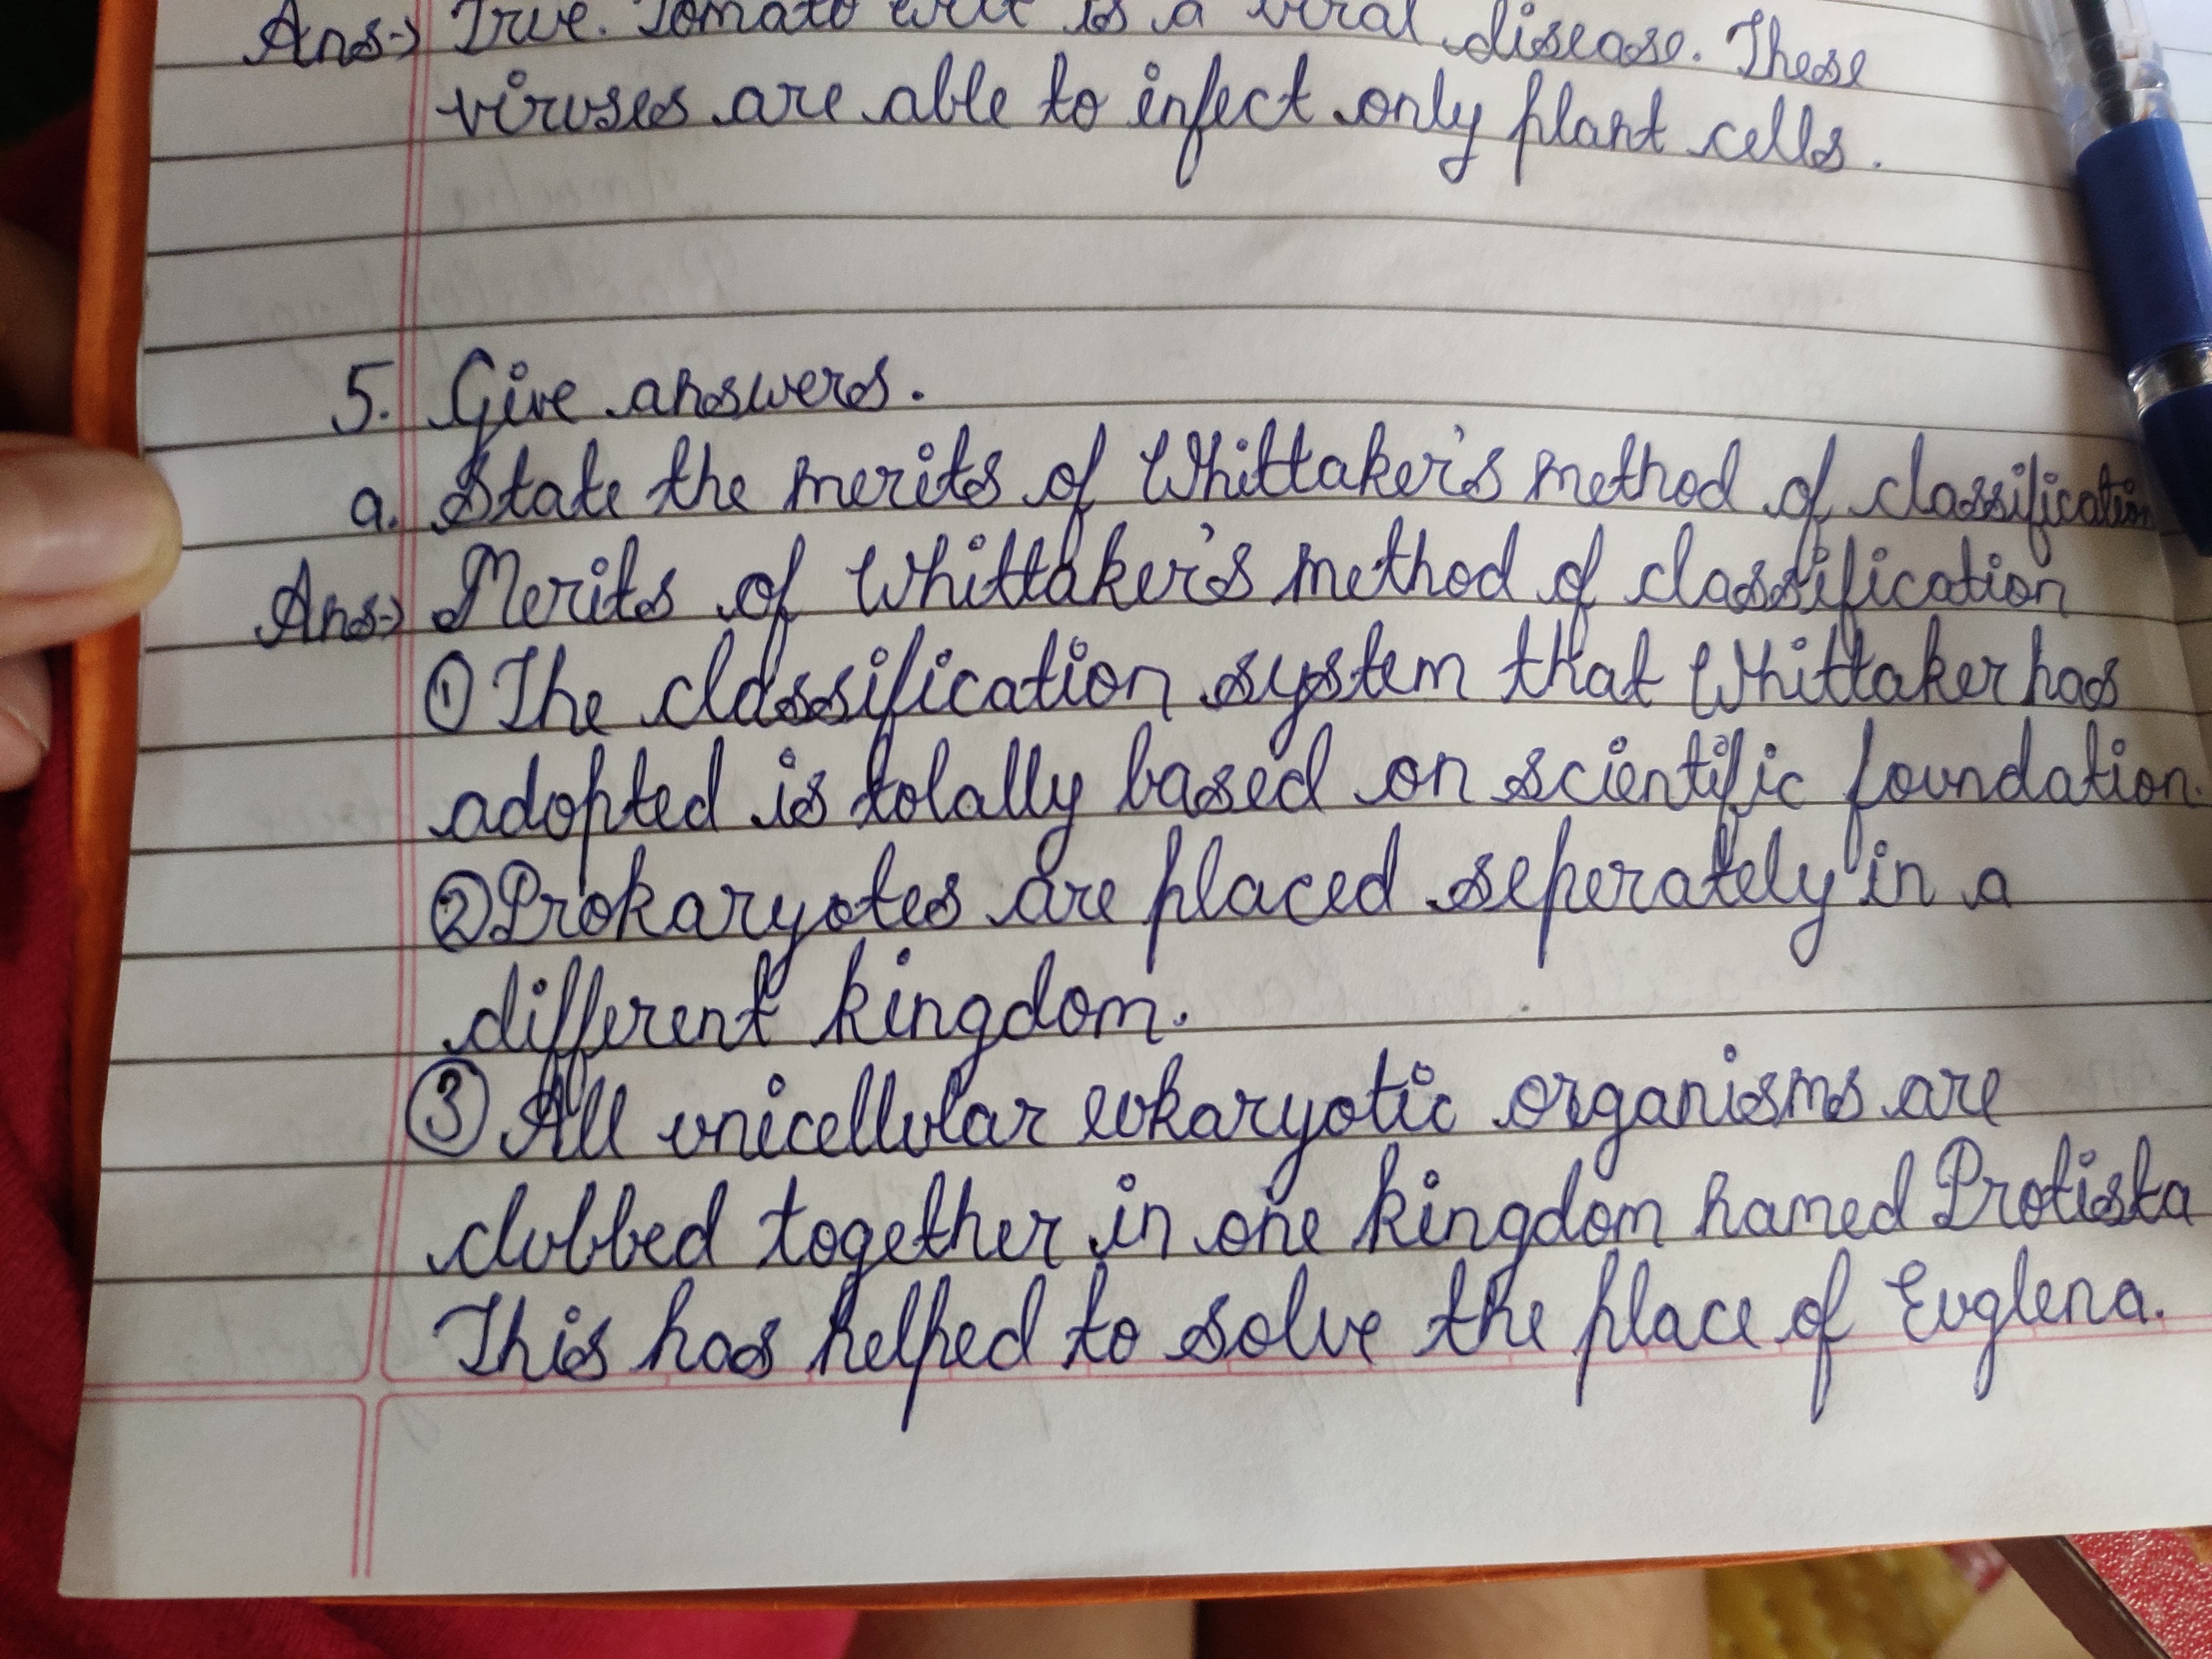 Ans→ True. Tomato wilt is a viral disease. These
viruses are able to infect only plant cells.
5. Give answers.
a. State the merits of Whittaker's method of classification
Ans→ Merits of Whittaker's method of classification
① The classification system that Whittaker has
adopted is totally based on scientific foundation.
② Prokaryotes are placed seperately in a
different kingdom.
③ All unicellular eukaryotic organisms are
clubbed together in one kingdom named Protista
This has helped to solve the place of Euglena.